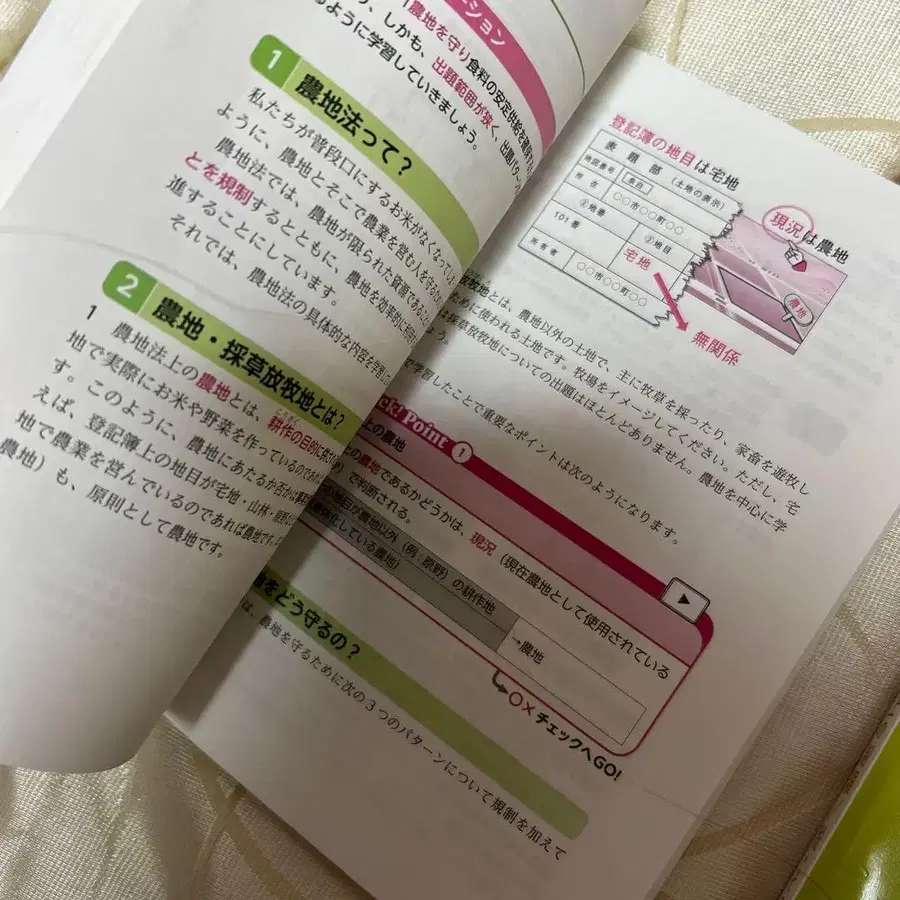 ーション
農地を守り食料の安定供給を確保する
り、しかも、出題範囲が狭く、出題パターン
るように学習していきましょう。
1 農地法って？
私たちが普段口にするお米がなくなってし
ように、農地とそこで農業を営む人を守るため
農地法では、農地が限られた資源であること
とを規制するとともに、農地を効率的に利用
進することにしています。
それでは、農地法の具体的な内容を学習し
2 農地・採草放牧地とは？
1 農地法上の農地とは、耕作の目的に供
こうさく
地で実際にお米や野菜を作っているのであれ
す。このように、農地にあたるか否かは事実
えば、登記簿上の地目が宅地・山林・原野な
地で農業を営んでいるのであれば農地です。
農地）も、原則として農地です。
登記簿の地目は宅地
表題部（土地の表示）
地図番号 余白
所在 ○○市○○町○○
②地番 ③地目
101番 宅地
所有者 ○○市○○町○○
現況は農地
農地
無関係
牧地とは、農地以外の土地で、主に牧草を採ったり、家畜を遊牧し
ために使われる土地です。牧場をイメージしてください。ただし、宅
は採草放牧地についての出題はほとんどありません。農地を中心に学
う。
で学習したことで重要なポイントは次のようになります。
ck! Point 1
上の農地
の農地であるかどうかは、現況（現在農地として使用されている
）で判断される。
の地目が農地以外（例：原野）の耕作地
している農地）
→農地
○×チェックへGO!
をどう守るの？
は、農地を守るために次の3つのパターンについて規制を加えて